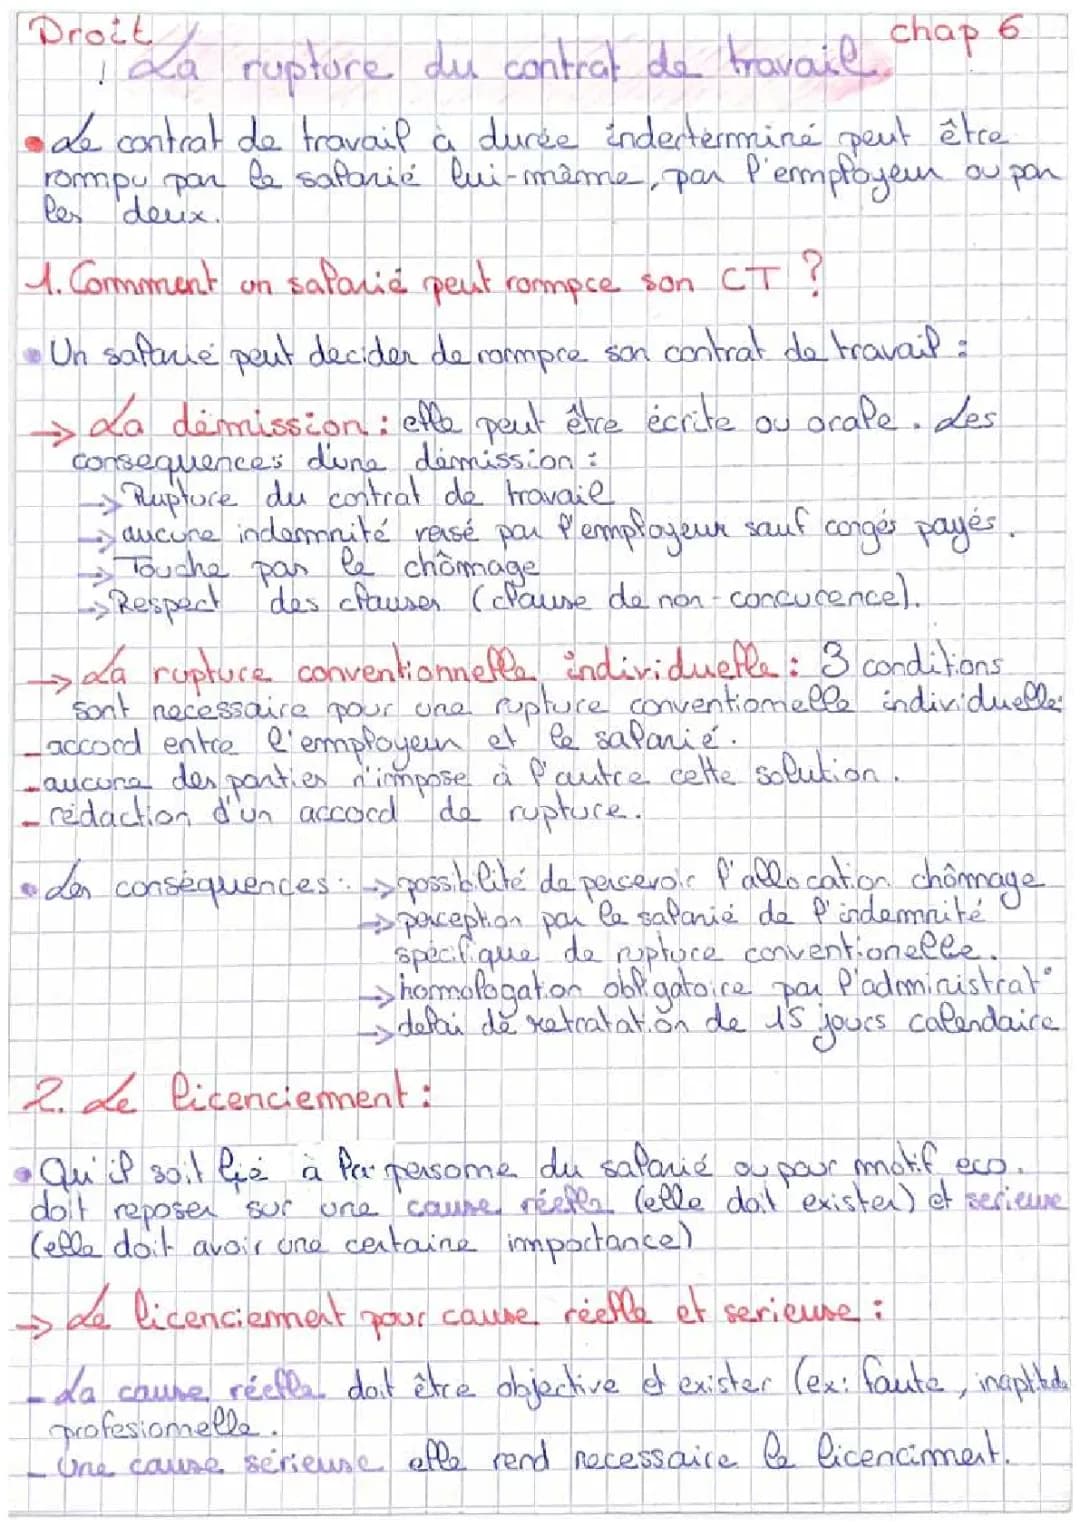 Droit
chap 6
! La rupture du contrat de travail.
• Le contrat de travail à durée indeterminé peut être
rompu par le salarié lui-même, par l'employeur ou par
les deux.
1. Comment un salarié peut rompre son CT ?
• Un salarié peut decider de rompre son contrat de travail :
→ La démission : elle peut être écrite ou orale. Les
consequences d'une démission :
→ Rupture du contrat de travail
→ aucune indemnité versé par l'employeur sauf congés payés.
→ Touche pas le chômage
→ Respect des clauses (clause de non-concurence).
→ La rupture conventionnelle individuelle : 3 conditions
sont necessaire pour une rupture conventionnelle individuelle:
- accord entre l'employeur et le salarié.
- aucune des parties n'impose à l'autre cette solution.
- redaction d'un accord de rupture.
• Les conséquences : → possibilité de percevoir l'allocation chômage
→ perception par le salarié de l'indemnité
spécifique de rupture conventionelle.
→ homologation obligatoire par l'administrat°
→ delai de retratation de 15 jours calendaire
2. Le licenciement :
• Qu'il soit lié à la personne du salarié ou pour motif eco.
doit reposer sur une cause réelle (elle doit exister) et serieuse
(elle doit avoir une certaine importance)
→ Le licenciement pour cause réelle et serieuse :
- La cause réelle doit être objective et exister (ex: faute, inaptitude
profesionnelle.
- Une cause sérieuse elle rend necessaire le licenciment.